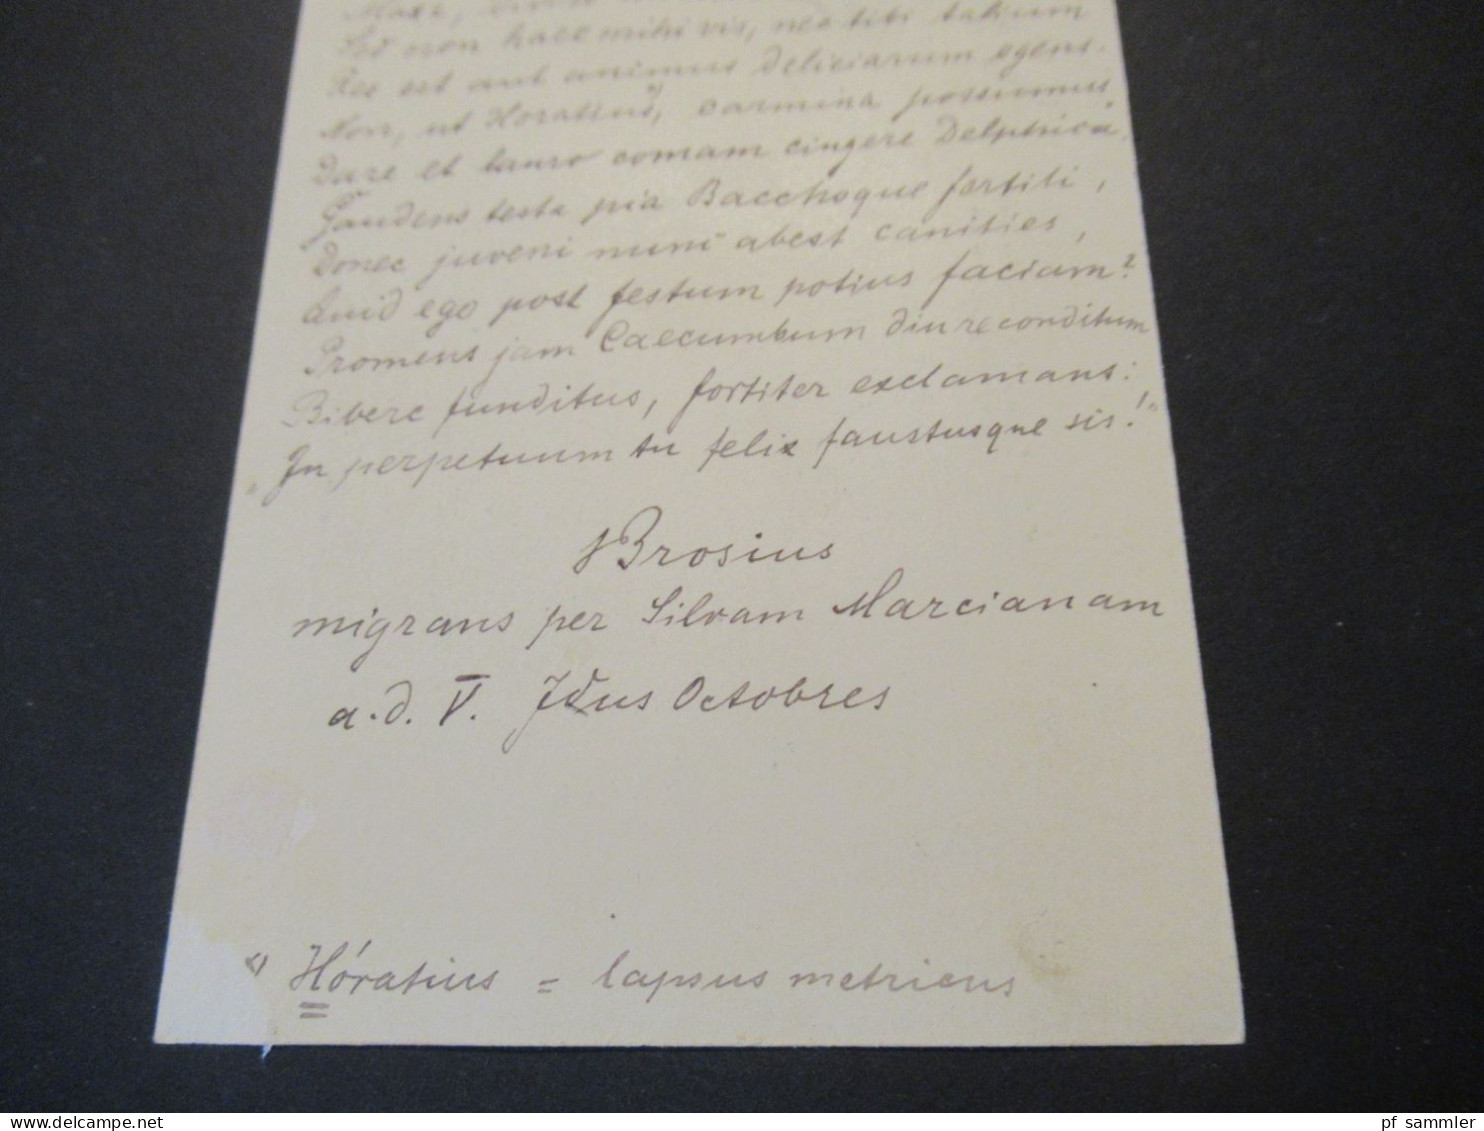 Sed non haec mihi vis, nec tibi talium
Res est aut animus deliciarum egens.
Non, ut Horatius, carmina possumus
Dare et lauro comam cingere Delphica.
Gaudens testa pia Bacchoque fertili,
Donec juveni mini abest canities,
Quid ego post festum potius faciam?
Promens jam Caecumbum diu reconditum
Bibere funditus, fortiter exclamans:
„In perpetuum tu felix faustusque sis!"
Brosius
migrans per Silvam Marcianam
a.d. V. Idus Octobres
Hóratius = lapsus metricus
pf sammler